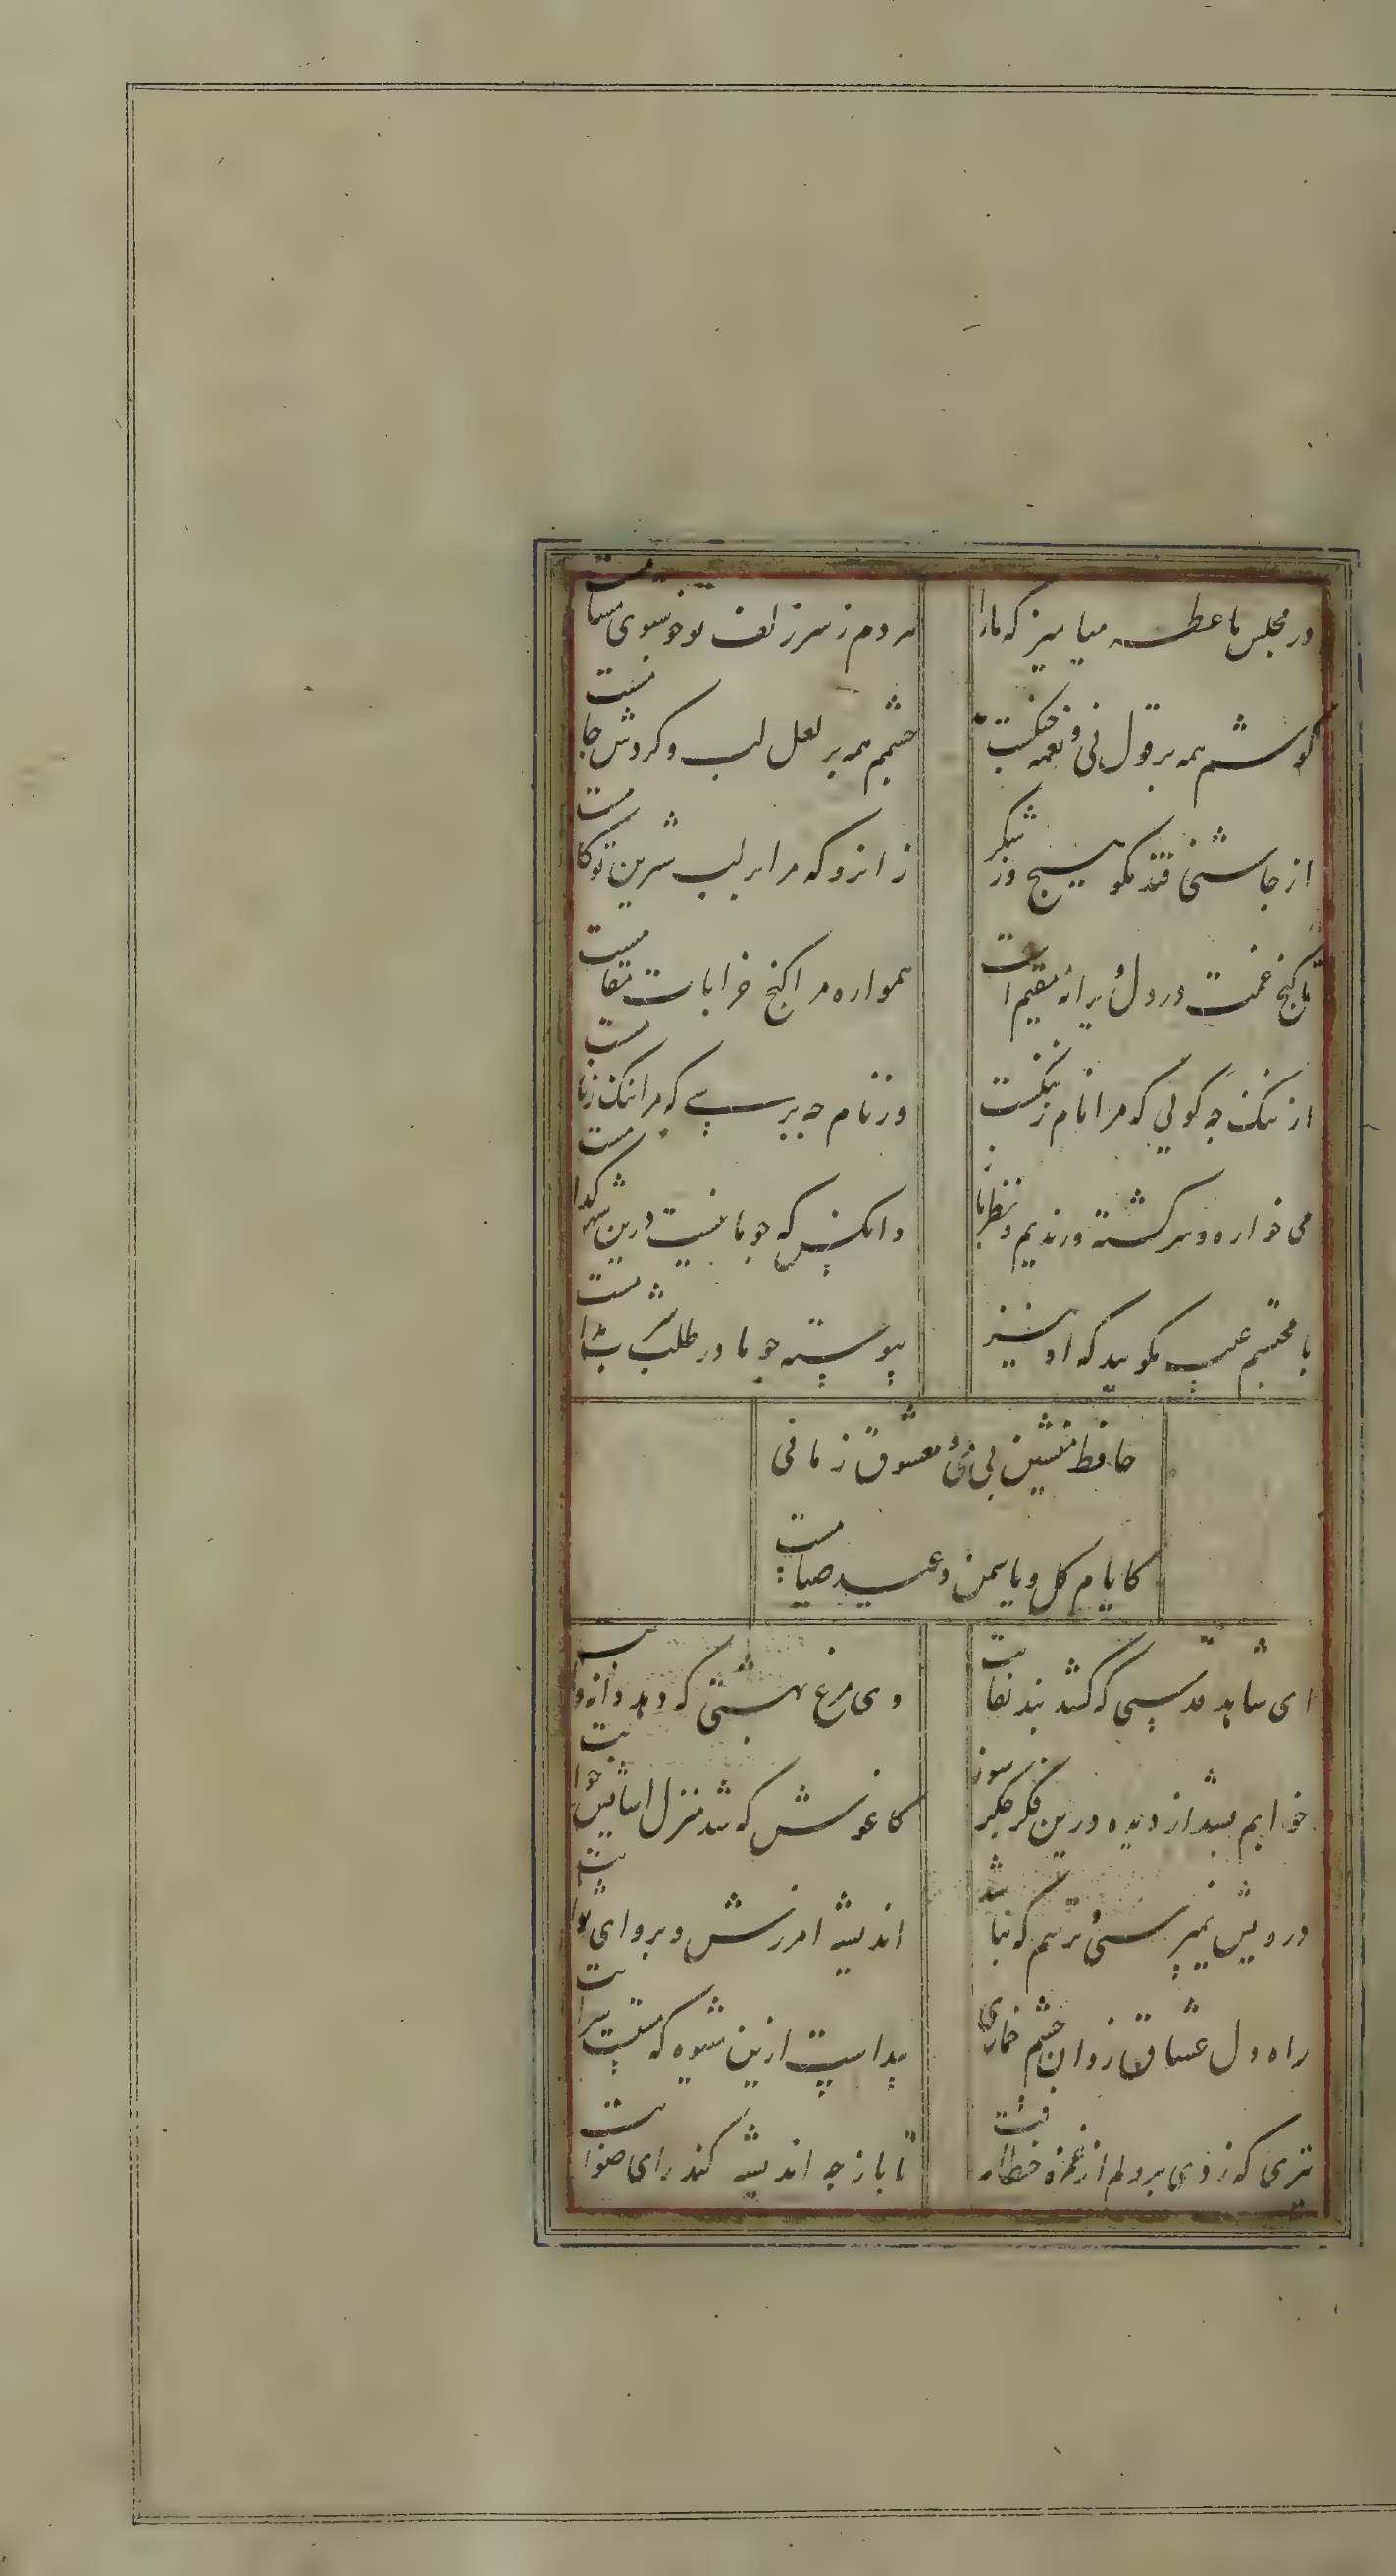 در مجلس ما عطر میامیز که ما را
هر دم ز سر زلف تو خوشبوی مشامست
گوشم همه بر قول نی و نغمه چنگست
چشمم همه بر لعل لب و گردش جامست
از چاشنی قند مگو هیچ وز شکر
زانرو که مرا بر لب شیرین تو کامست
تا گنج غمت در دل ویرانه مقیم است
همواره مرا کنج خرابات مقامست
از ننگ چه گویی که مرا نام ز ننگست
وز نام چه پرسی که مرا ننگ ز نامست
می خواره و سرگشته و رندیم و نظرباز
وانکس که چو ما نیست درین شهر کدامست
با محتسبم عیب مگویید که او نیز
پیوسته چو ما در طلب شرب مدامست
حافظ منشین بی می و معشوق زمانی
کایام گل و یاسمن و عید صیامست
ای شاهد قدسی که کشد بند نقابت
وی مرغ بهشتی که دهد دانه و آبت
خوابم بشد از دیده درین فکر جگرسوز
کاغوش که شد منزل آسایش خوابت
درویش نمی پرسی و ترسم که نباشد
اندیشه آمرزش و پروای ثوابت
راه دل عشاق زد آن چشم خماری
پیداست ازین شیوه که مستست شرابت
تیری که زدی بر دلم از غمزه خطا رفت
تا باز چه اندیشه کند رای صوابت